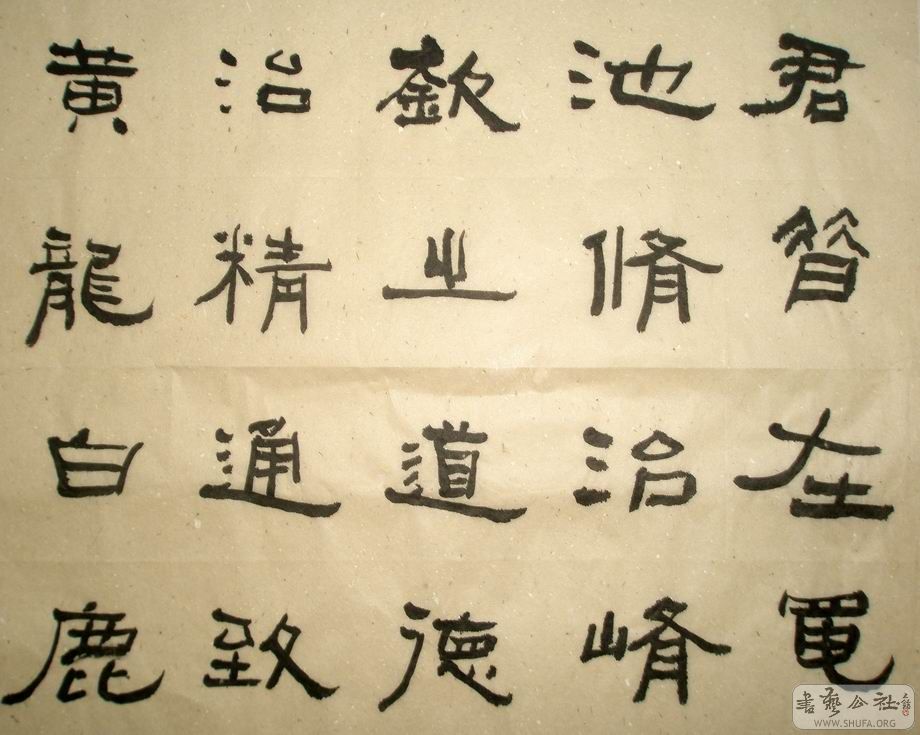 君昔在黽
池脩治崤
嶔之道德
治精通致
黃龍白鹿
書藝公社
WWW.SHUFA.ORG